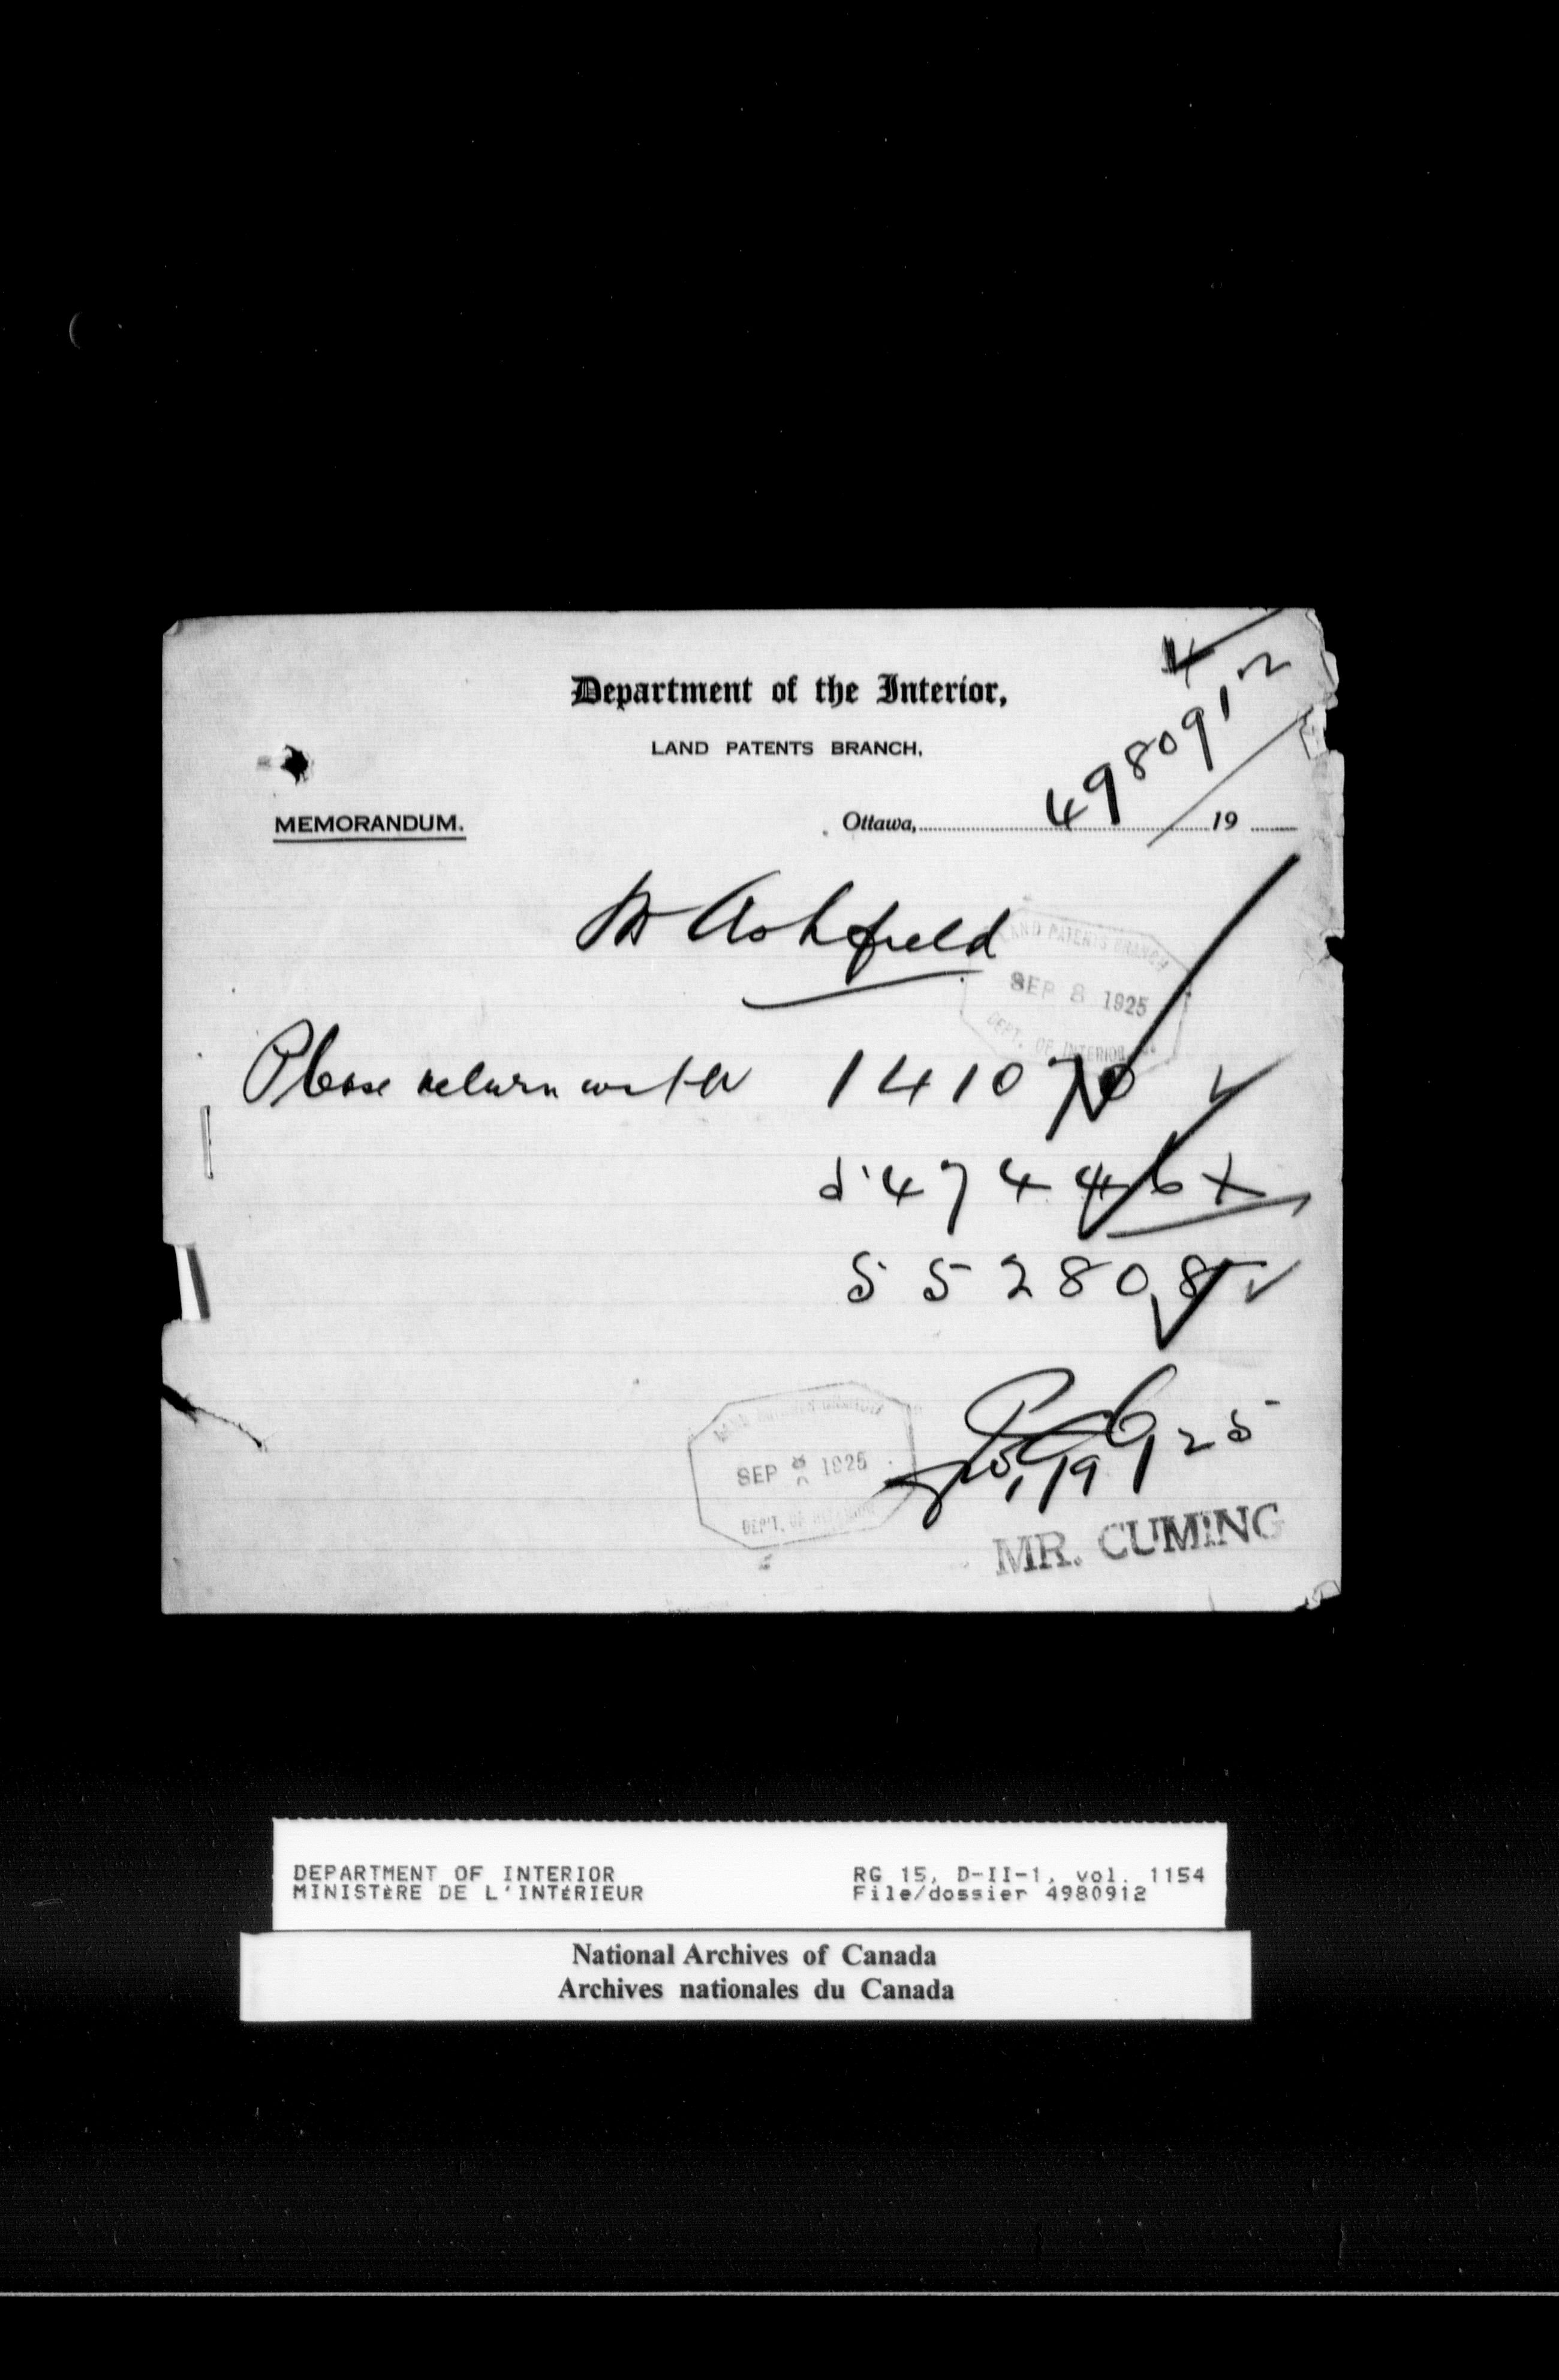 Department of the Interior,
LAND PATENTS BRANCH,
4980912
MEMORANDUM.
Ottawa, 19
Mr Ashfield
LAND PATENTS BRANCH
SEP 8 1925
DEPT. OF INTERIOR
Please return with 141070
547446
552808
SEP 1925
DEPT. OF INTERIOR
25
MR. CUMING
DEPARTMENT OF INTERIOR RG 15, D-II-1, vol. 1154
MINISTÈRE DE L'INTÉRIEUR File/dossier 4980912
National Archives of Canada
Archives nationales du Canada